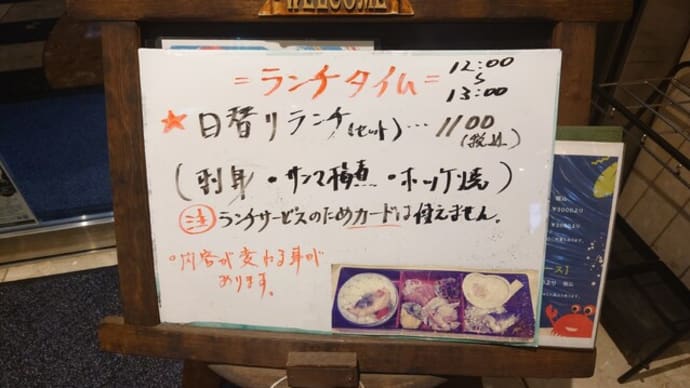 WELCOME
=ランチタイム= 12:00
〜
13:00
★日替りランチ(セット)…1100
(税込)
(刺身・サンマ梅煮・ホッケ焼)
注 ランチサービスのためカードは使えません。
○内容が変わる事が
あります。